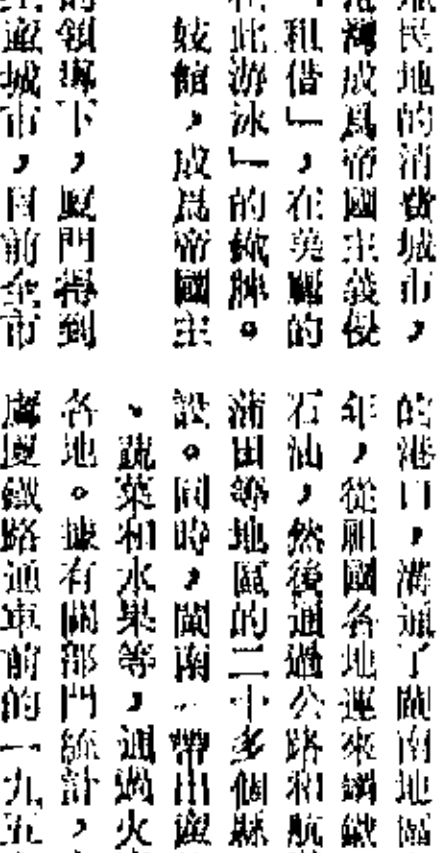 地民地的消費城市，
港灣成爲帝國主義侵
「租借」，在美麗的
在此游泳」的
妓館，成爲帝國主
的領導下，廈門得到
產城市，目前全市
的港口，溝通了閩南地區
年，從祖國各地運來鋼鐵
石油，然後通過公路和航
莆田等地區的二十多個縣
設。同時，閩南一帶出產
、蔬菜和水果等，通過火
各地。據有關部門統計，
鷹廈鐵路通車前的一九五